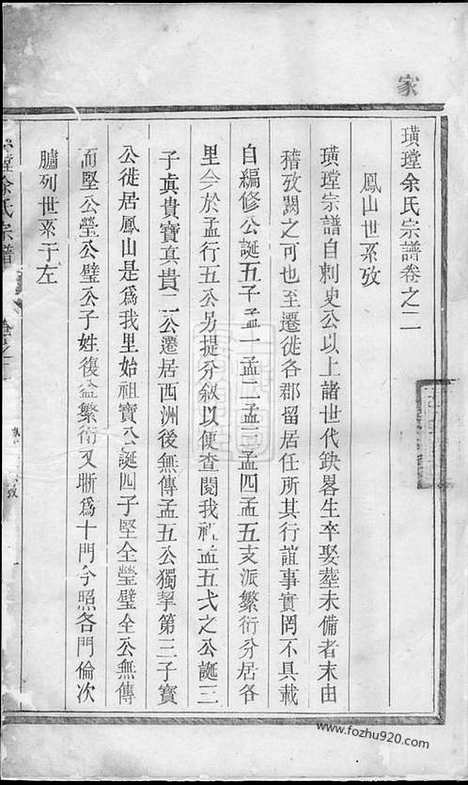 家
璜瑝余氏宗譜卷之二
鳳山世系攷
璜瑝宗譜自刺史公以上諸世代鈌畧生卒娶塟未備者末由
稽攷闕之可也至遷徙各郡留居任所其行誼事實罔不具載
自編修公誕五子孟一孟二孟三孟四孟五支派繁衍分居各
里今於孟行五公另提分敘以便查閱我祖孟五弍之公誕三
子真貴寶真貴二公遷居西洲後無傳孟五公獨挈第三子寶
公徙居鳳山是為我里始祖寶公誕四子堅全瑩璧全公無傳
而堅公瑩公璧公子姓復益繁衍又晰為十門今照各門倫次
臚列世系于左
余氏宗譜
www.fozhu920.com